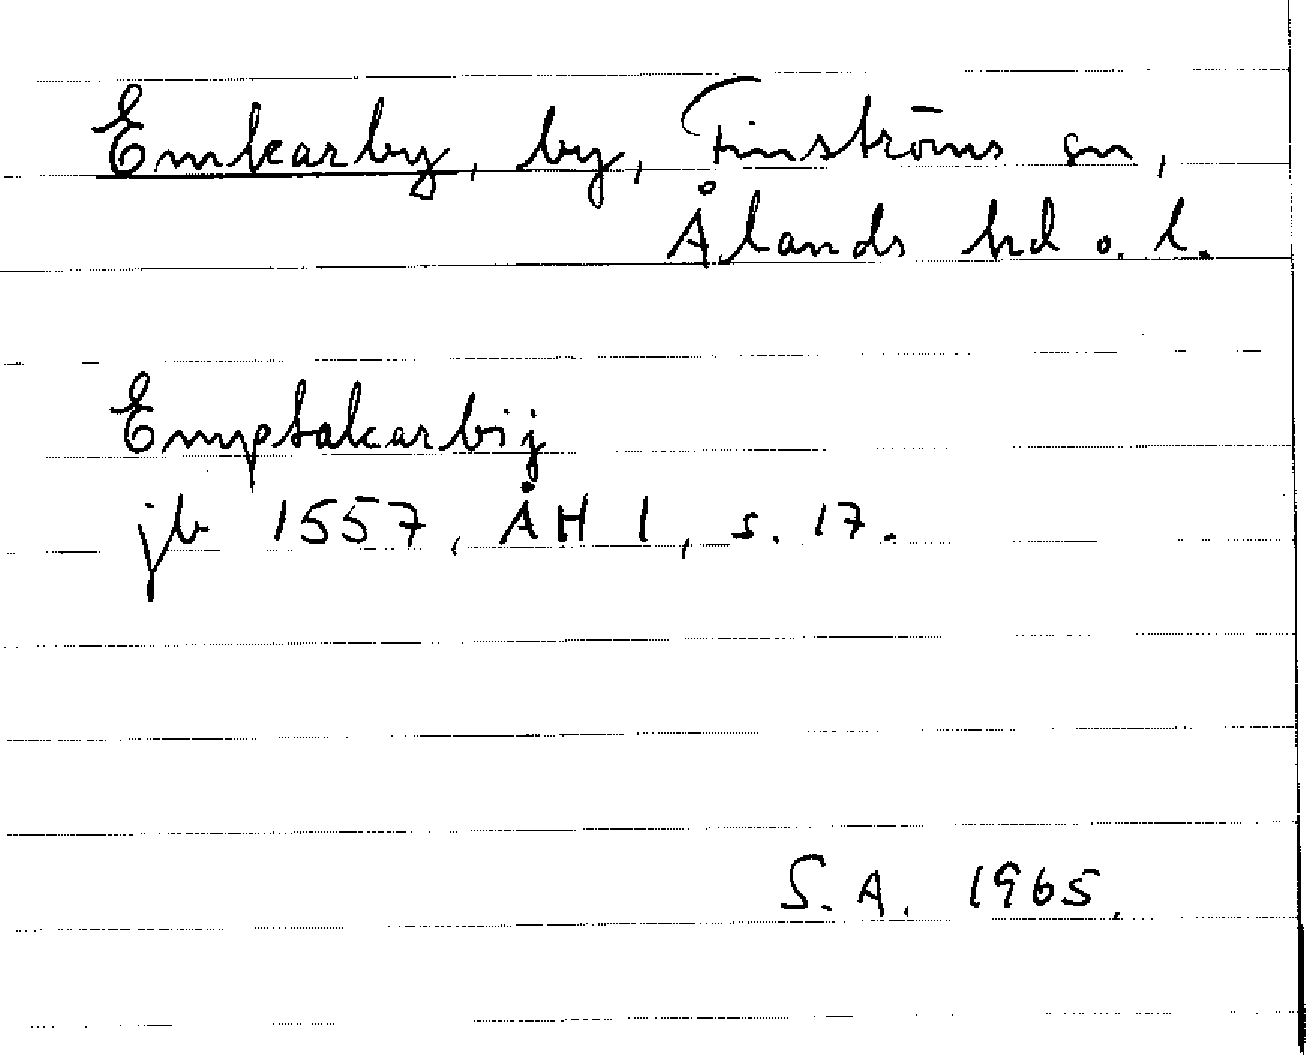 Emkarby, by, Finströms sn,
Ålands hd o. l.
Emptakarbij
jb 1557, ÅH 1, s. 17.
S. A. 1965.